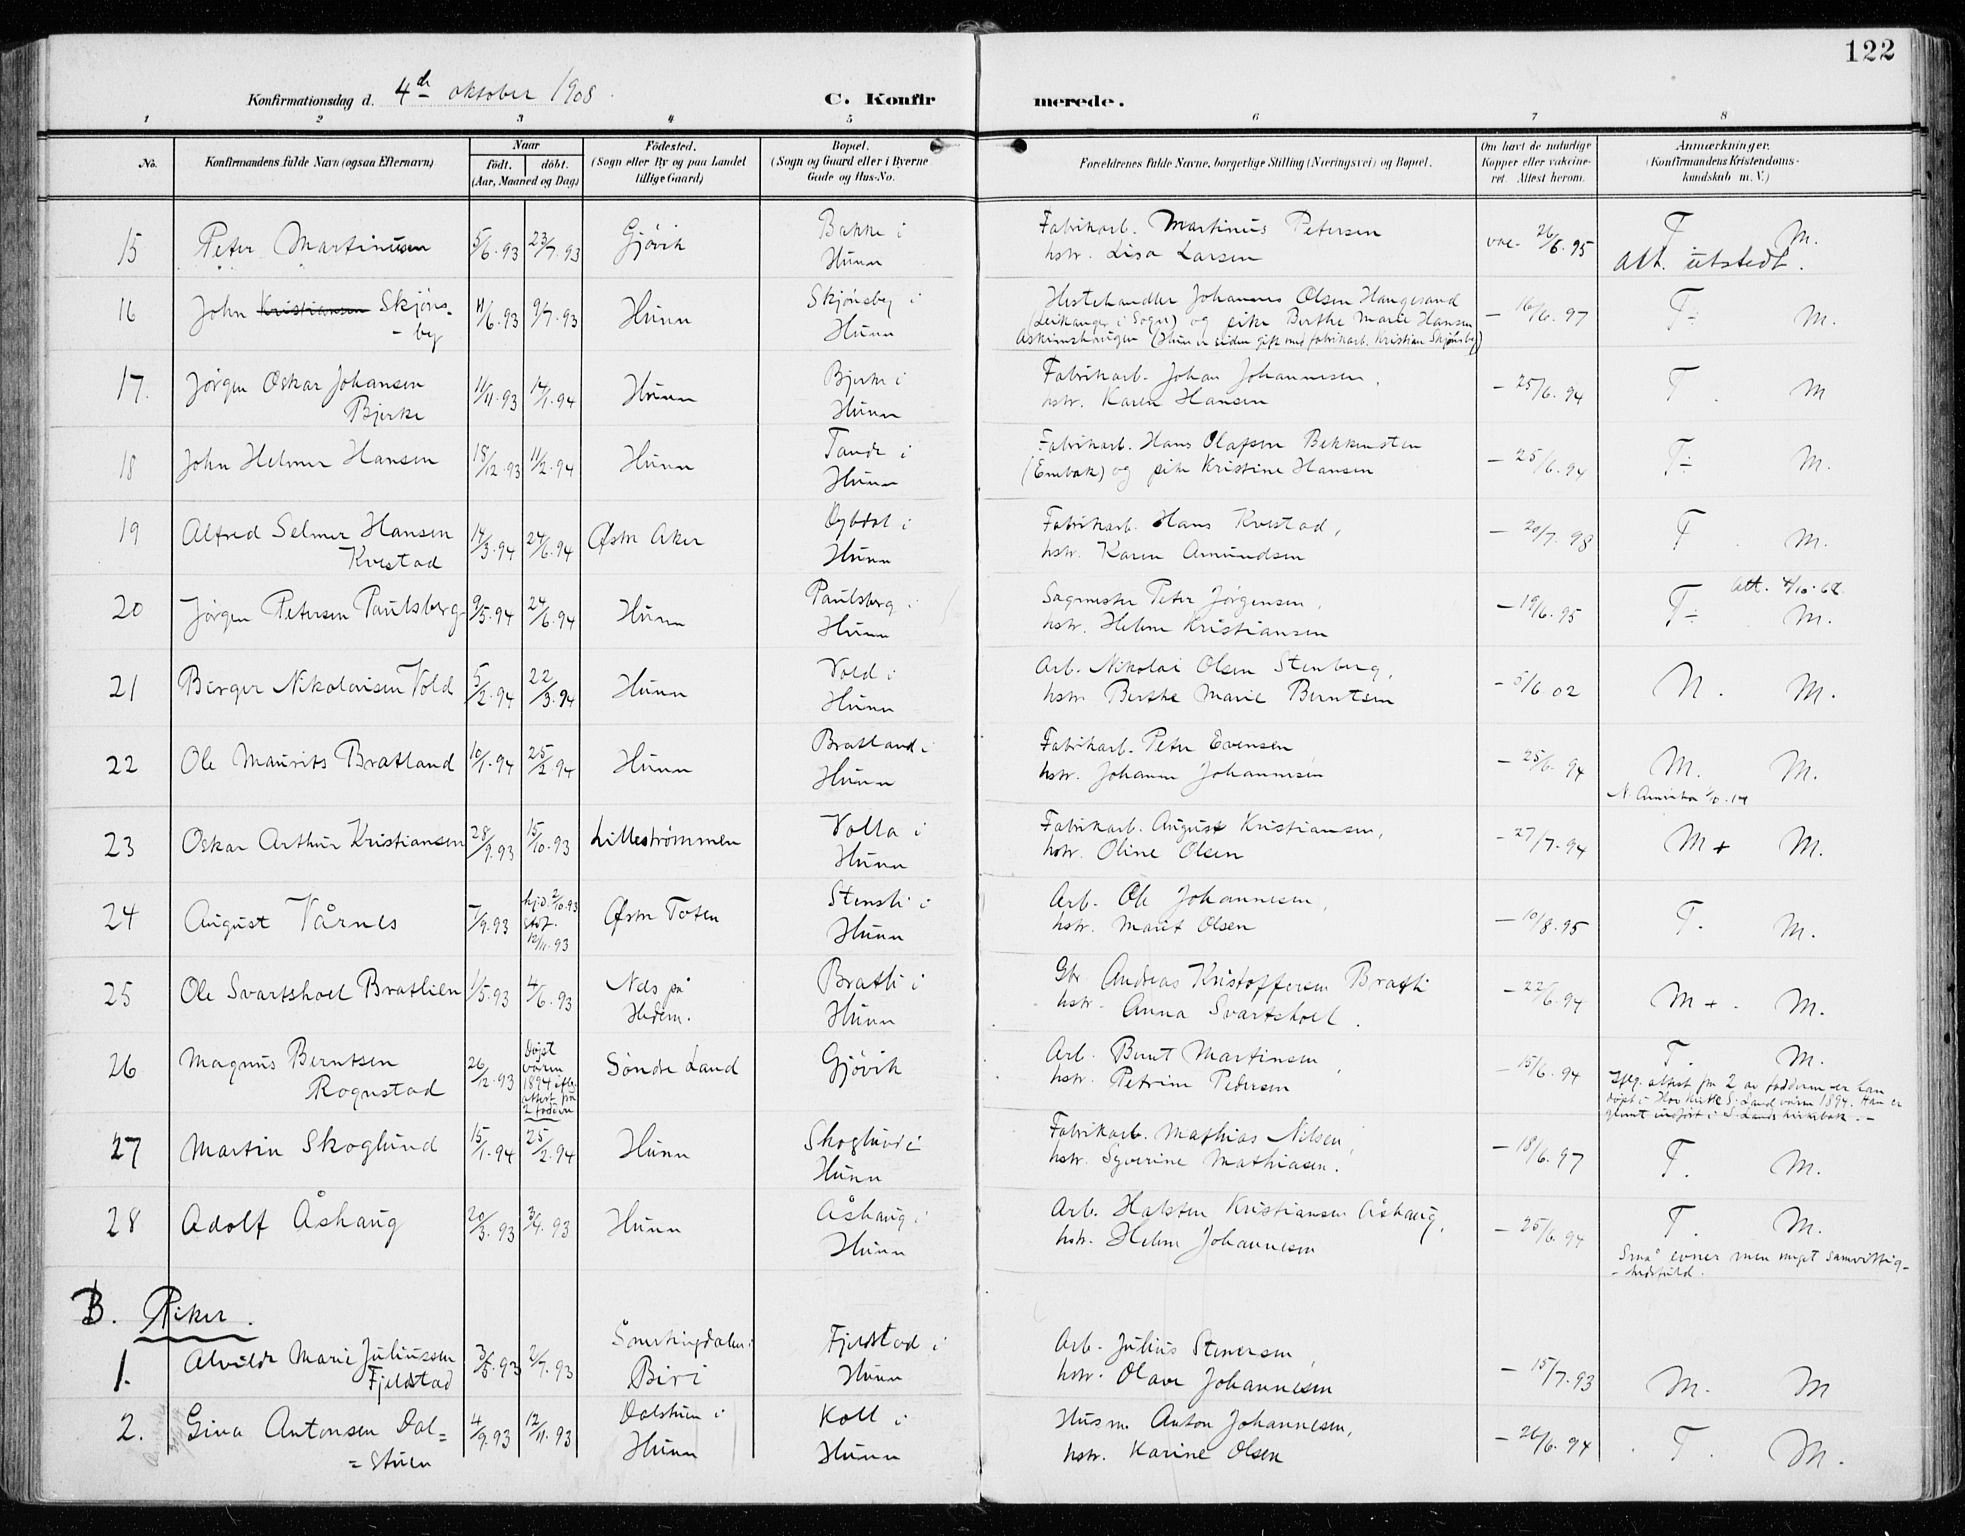 122
Konfirmationsdag d. 4de oktober 1908.
C. Konfirmerede.
1 2 3 4 5 6 7 8
No. Konfirmandens fulde Navn (ogsaa Efternavn) Naar født. døbt. (Aar, Maaned og Dag) Fødested. (Sogn eller By og paa Landet tillige Gaard) Bopæl. (Sogn og Gaard eller i Byerne Gade og Hus-No. Forældrenes fulde Navne, borgerlige Stilling (Næringsvei) og Bopæl. Om havt de naturlige Kopper eller vakcineret. Attest herom. Anmærkninger. (Konfirmandens Kristendomskundskab m. V.)
15 Peter Martinusen 5/6.93 23/7.93 Gjøvik Bakke i Fabrikarb. Martinus Petersen vac. 26/6.95 T M.
Hunn hstr. Lisa Larsen Att. utstedt.
16 John Kristiansen Skjøns- 11/6.93 9/7.93 Hunn Skjønsby i Hestehandler Johannes Olsen Haugesand - 16/6.97 T÷ M.
-by Hunn (Leikanger i Sogn) og pike Berthe Marie Hansen
Askimshaugen (Hun er siden gift med fabrikarb. Kristian Skjønsby)
17. Jørgen Oskar Johansen 11/11.93 14/1.94 Hunn Bjerke i Fabrikarb. Johan Johannesen, - 25/6.94 T. M
Bjerke Hunn hstr. Karen Hansen
18 John Helmer Hansen 18/12.93 11/2.94 Hunn Tande i Fabrikarb. Hans Olafsen Bekkensten - 25/6.94 T÷ M.
Hunn og pike Kristine Hansen
19 Alfred Selmer Hansen 14/3.94 24/6.94 Østre Aker i Fabrikarb. Hans Kvestad, - 20/7.98 T M.
Kvestad Hunn hstr. Karen Amundsen
20 Jørgen Petersen Paulsberg 9/5.94 24/6.94 Hunn Paulsberg i Sagmester Peter Jørgensen, - 19/6.95 T÷ M.
Hunn hstr. Helene Kristiansen
21 Birger Nikolaisen Vold 5/2.94 22/3.94 Hunn Vold i Arb. Nikolai Olsen Stenberg, - 5/6 02 N. M.
Hunn hstr. Berthe Marie Berntsen
22 Ole Maurits Bratland 10/1.94 25/2.94 Hunn Bratland i Fabrikarb. Peter Evensen - 25/6.94 M. M.
Hunn hstr. Johanne Johannesen N. Amerika
23 Oskar Arthur Kristiansen 28/9.93 15/10.93 Lillestrømmen Volla i Fabrikarb. August Kristiansen, - 27/7.94 M+ M.
Hunn hstr. Oline Olsen
24 August Vårnes 7/9.93 hjd. 2/10.93 Østre Toten Stensli i Arb. Ole Johannesen, - 10/8.95 T. M.
stf. 12/11.93 Hunn hstr. Marit Olsen
25 Ole Svartshoel Bratlien 1/5.93 4/6.93 Nes på Bratli i Gbr. Andreas Kristoffersen Bratli - 22/6.94 M+. M.
Hedem. Hunn hstr. Anna Svartshoel.
26 Magnus Berntsen 26/12.93 Døpt våren 1894 ifl. attest fra 2 faddere Søndre Land Gjøvik Arb. Bernt Martinsen, - 15/6.94 T. M.
Rognstad hstr. Petrine Pedersen Iflg. attest fra 2 av fadderne er han
døpt i Hov kirke S. Land våren 1894. Han er
glemt indført i S. Lands kirkebok. -
27 Martin Skoglund 15/1.94 25/2.94 Hunn Skoglund i Fabrikarb. Mathias Nilsen, - 18/6.97 T. M.
Hunn hstr. Syverine Mathiasen.
28 Adolf Åshaug 20/3.93 3/4.93 Hunn Åshaug i Arb. Halsten Kristiansen Åshaug, - 25/6.94 T. M.
Hunn hstr. Helene Johannesen Små evner men meget samvittig-
-hedsfuld.
B. Piker.
1. Alvilde Marie Juliussen 3/5.93 2/7.93 Snertingdalen i Fjeldstad i Arb. Julius Stenersen, - 15/7.93 M. M
Fjeldstad Biri Hunn hstr. Olave Johannesen
2. Gina Antonsen Dal= 4/9.93 12/11.93 Dalstuen i Koll i Husm. Anton Johannesen, - 26/6.94 T. M.
=stuen Hunn Hunn hstr. Karine Olsen